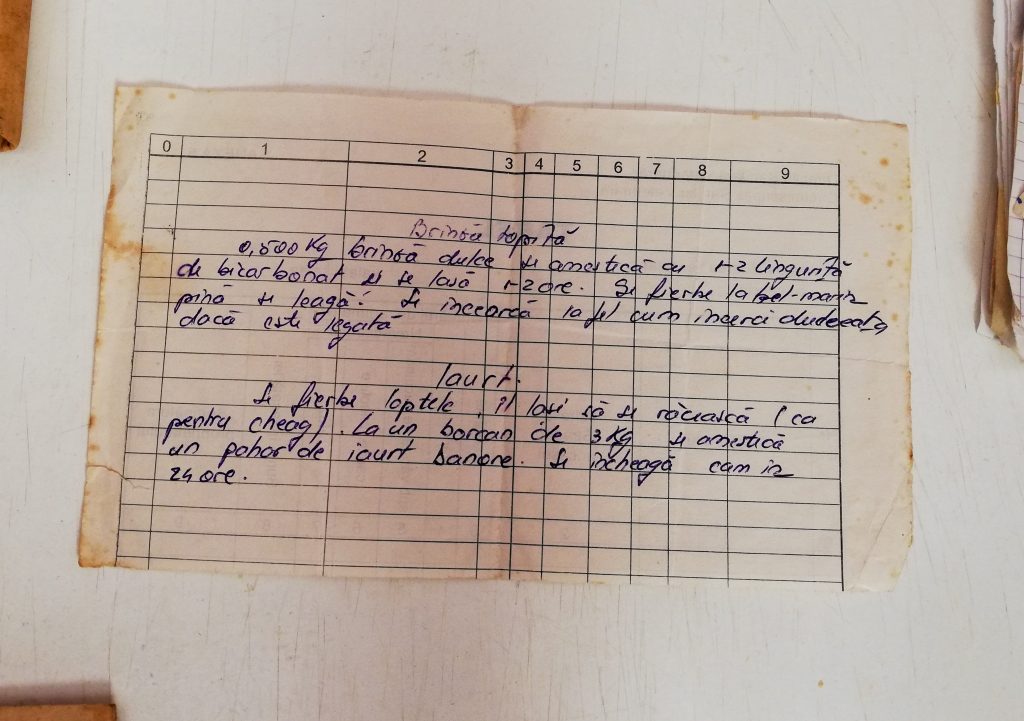 0 1 2 3 4 5 6 7 8 9
Brînsă topită
0,500 Kg brînsă dulce se amestică cu 1-2 linguriță
de bicarbonat și se lasă 1-2 ore. Se fierbe la bel-marin
pînă se leagă. Se încearcă la fel cum încerci dulceața
dacă este legată
Iaurt.
Se fierbe laptele, îl lași să se răcească (ca
pentru cheag). La un borcan de 3 Kg se amestică
un pahar de iaurt Danone. Se încheagă cam în
24 ore.